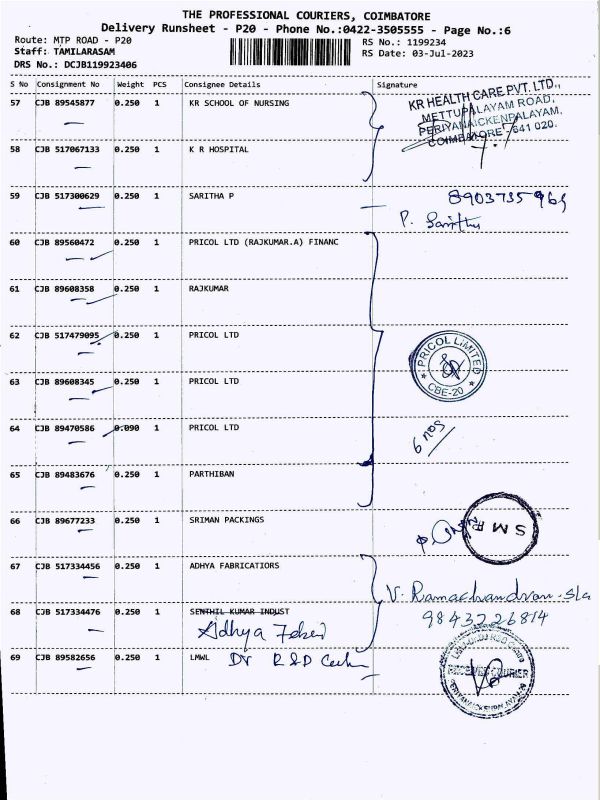 THE PROFESSIONAL COURIERS, COIMBATORE
Delivery Runsheet - P20 - Phone No.:0422-3505555 - Page No.:6
Route: MTP ROAD - P20
RS No.: 1199234
Staff: TAMILARASAM
RS Date: 03-Jul-2023
DRS No.: DCJB119923406
S No Consignment No Weight PCS Consignee Details Signature
57 CJB 89545877 0.250 1 KR SCHOOL OF NURSING
KR HEALTH CARE PVT. LTD.,
METTUPALAYAM ROAD,
PERIYANAICKENPALAYAM,
COIMBATORE - 641 020.
58 CJB 517067133 0.250 1 K R HOSPITAL
59 CJB 517300629 0.250 1 SARITHA P
8903735969
P. Saritha
60 CJB 89560472 0.250 1 PRICOL LTD (RAJKUMAR.A) FINANC
61 CJB 89608358 0.250 1 RAJKUMAR
62 CJB 517479095 0.250 1 PRICOL LTD
PRICOL LIMITED
CBE-20
63 CJB 89608345 0.250 1 PRICOL LTD
64 CJB 89470586 0.090 1 PRICOL LTD
6 nos
65 CJB 89483676 0.250 1 PARTHIBAN
66 CJB 89677233 0.250 1 SRIMAN PACKINGS
S M P
67 CJB 517334456 0.250 1 ADHYA FABRICATIORS
V. Ramachandran
9843226814
68 CJB 517334476 0.250 1 SENTHIL KUMAR INDUST
Adhya
69 CJB 89582656 0.250 1 LMWL
R & D
RECEIVED COURIER
PERIYANAICKENPALAYAM